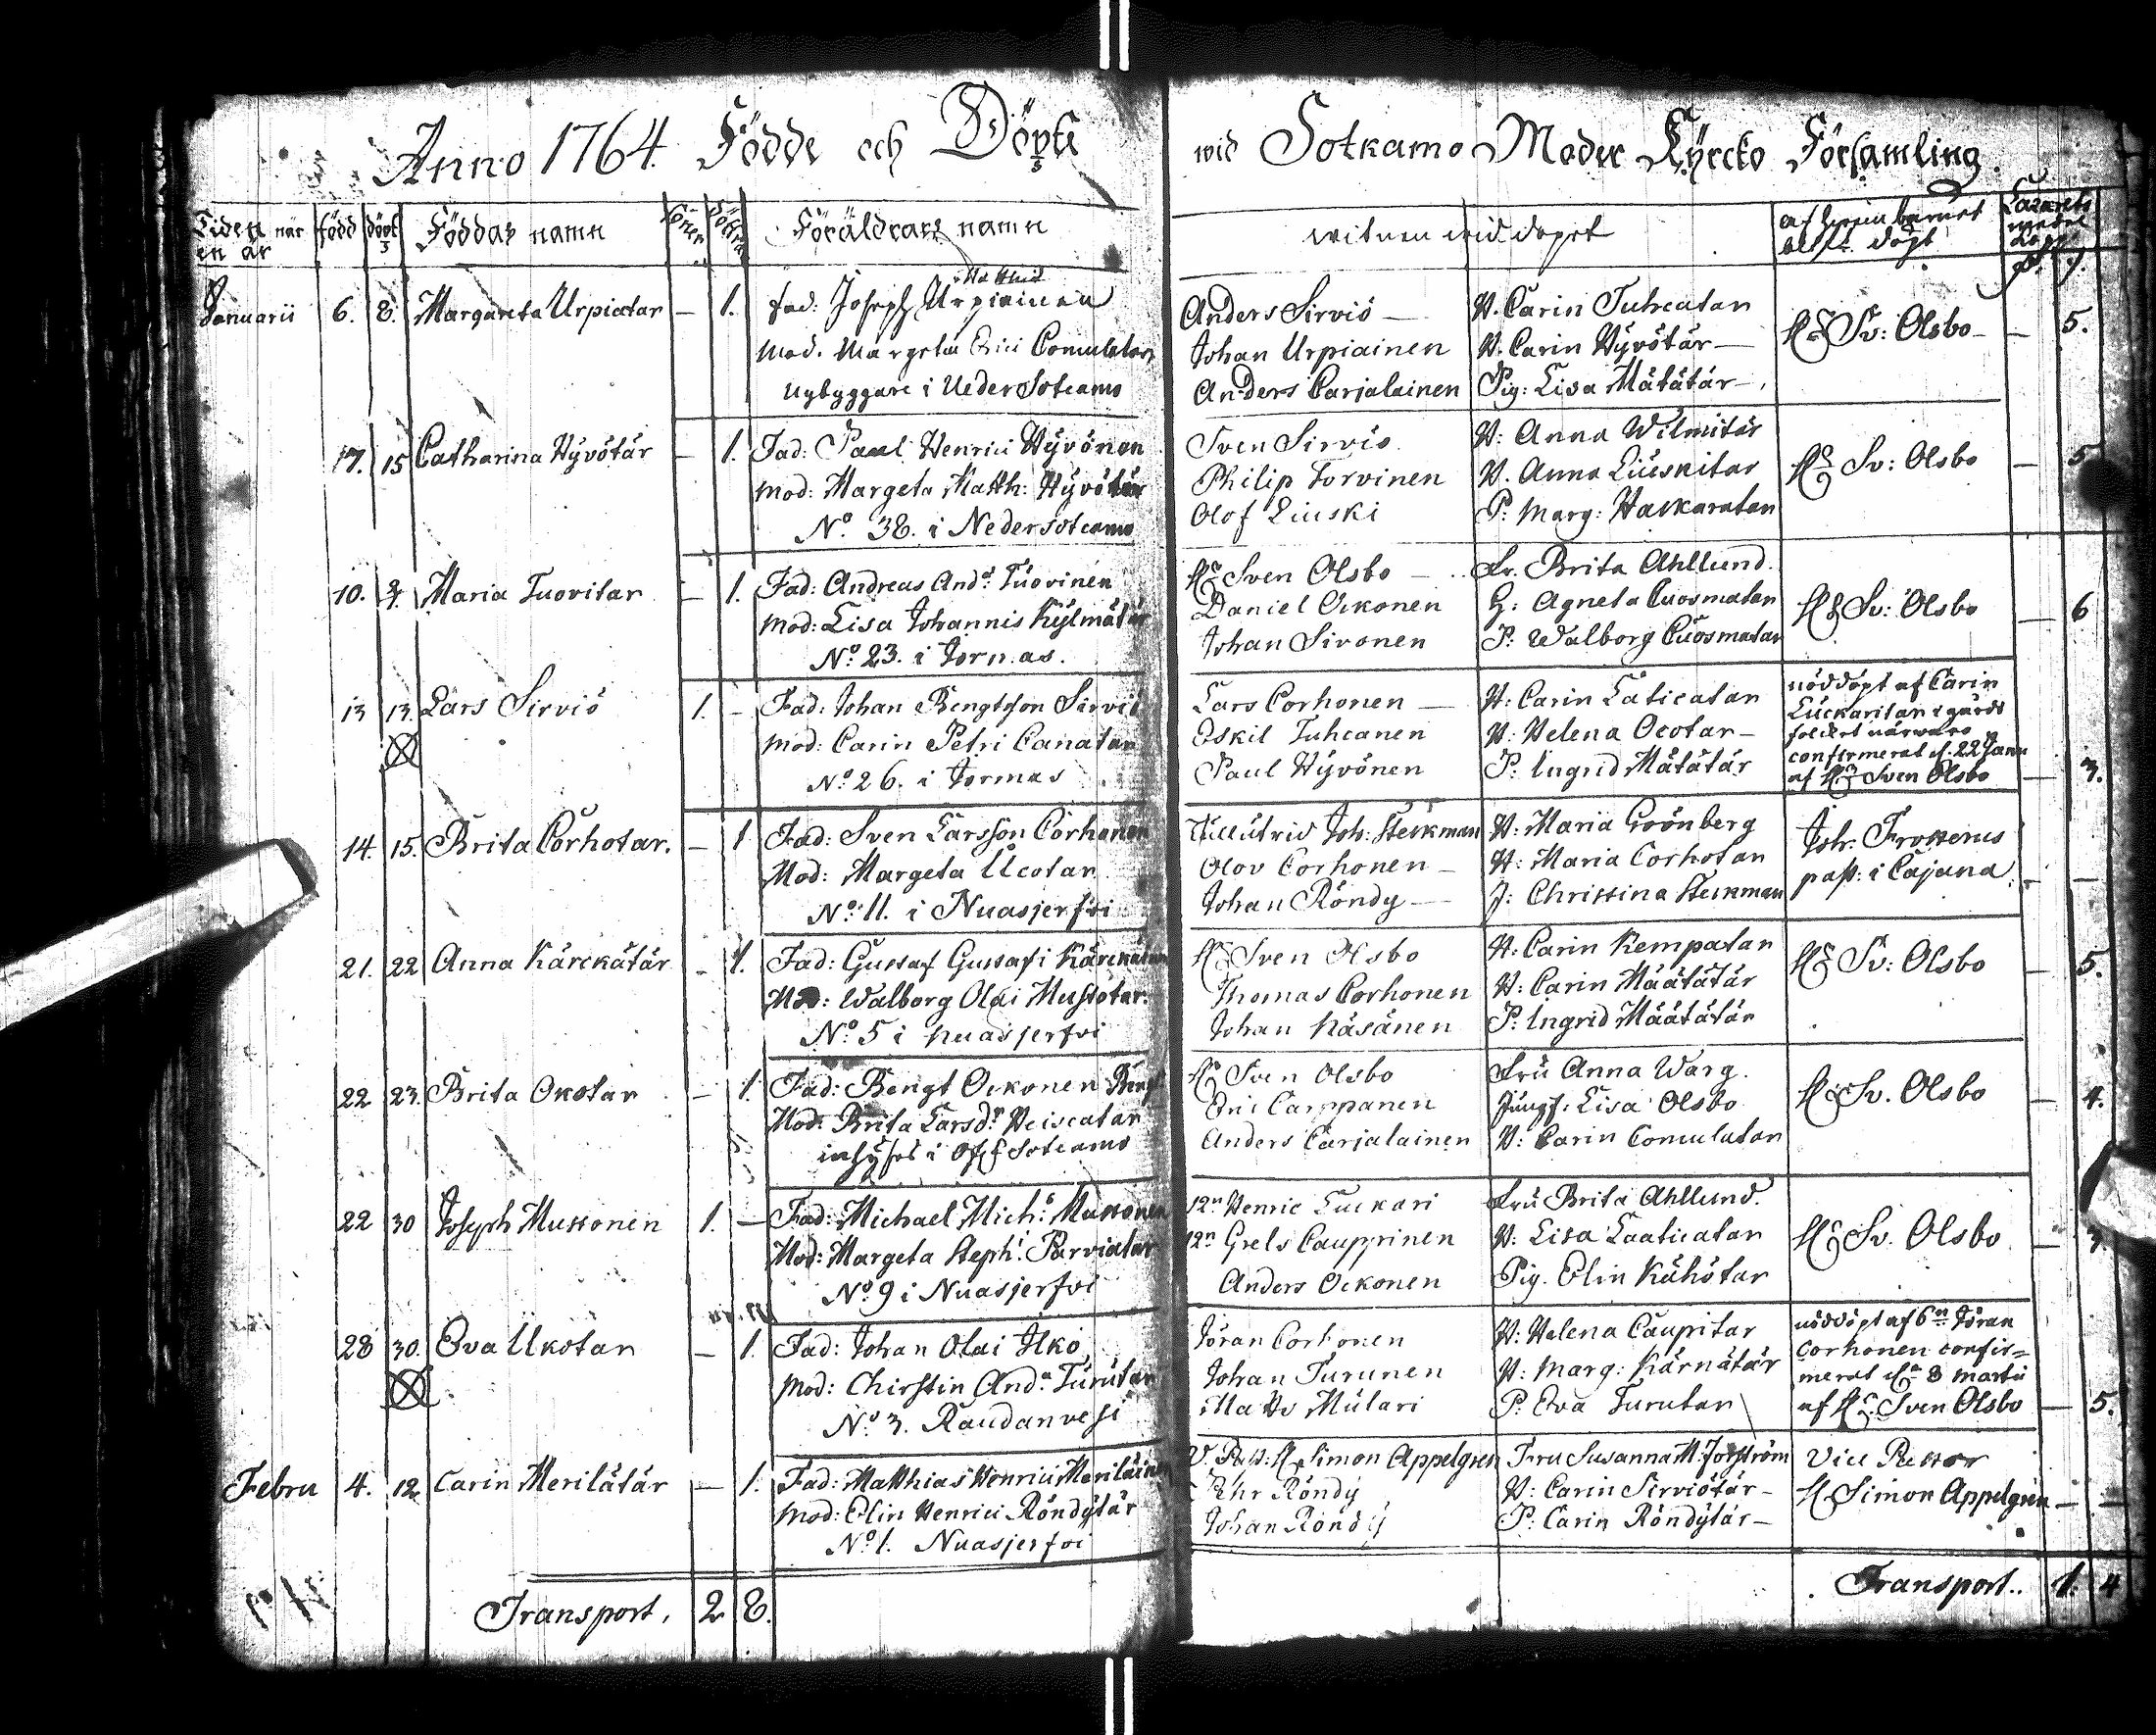 Anno 1764. Födde och Döpte
Tiden när född döpt Föddas namn Söner Döttrar Föräldrars namn
en är
Januarii 6. 8. Margareta Urpiatar — 1. Fad: Joseph Matthiæ Urpiainen
Mod. Margeta Erici Comulatar
Nybyggare i Neder Sotcamo
7. 15 Catharina Hyvötär — 1. Fad: Paul Henrici Hyvönen
Mod: Margeta Matth: Hyvötär
No 38. i Nedersotcamo
10. Maria Tuovitar — 1. Fad: Andreas And: Tuovinen
Mod: Lisa Johannis Kylmätär
No 23. i Jormas.
13 13. Lars Sirviö 1. — Fad: Johan Bengtsson Sirviö
Mod: Carin Petri Canatar
No 26. i Jormas
14. 15. Brita Corhotar. — 1 Fad: Sven Larsson Corhonen
Mod: Margeta Ucotar
No 11. i Nuasjerfvi
21. 22 Anna Kärckätär — 1. Fad: Gustaf Gustafi Kärckäinen
Mod: Walborg Olai Mustotar.
No 5 i Nuasjerfvi
22 23. Brita Okotar — 1. Fad: Bengt Ockonen
Mod: Brita Larsdr Heiscatar
inhyses i Öfre Sotcamo
22 30 Joseph Mustonen 1. — Fad: Michael Mich: Mustonen
Mod: Margeta Steph: Parviatar
No 9 i Nuasjerfvi
28 30. Eva Ukotar — 1. Fad: Johan Olai Ilko
Mod: Chirstin And: Turutar
No 3. Raudanvesi
Febru 4. 12 Carin Merilätär — 1. Fad: Matthias Henrici Meriläinen
Mod: Elin Henrici Röndytär
No 1. Nuasjerfvi
Transport. 2 8.
wid Sotkamo Moder Kyrcko Församling.
witnen wid dopet af hvem barnet blifv. döpt Lazarets medel
Anders Sirviö — H. Carin Tuhcatar Hr Sv: Olsbo — 5.
Johan Urpiainen H. Carin Hyvötär —
Anders Carjalainen Pig: Lisa Mätätär —
Sven Sirviö H: Anna Wilmitär Hr Sv: Olsbo — 5
Philip Torvinen H. Anna Liuskitar
Olof Liuski P: Marg: Haskaratar
Hr Sven Olsbo — Fr. Brita Ahllund. Hr Sv: Olsbo — 6
Daniel Ockonen H: Agneta Cuosmatar
Johan Sivonen P: Walborg Cuosmatar
Lars Corhonen — H: Carin Laticatar nöddöpt af Carin
Eskil Tuhcanen H: Helena Ocotar — Luckaritar i gårds
Paul Hyvönen P: Ingrid Mätätär folckets närvaro
confirmerat d. 22 Janu
af Hr Sven Olsbo — 3.
Tullutrid Joh: Steckman H: Maria Grönberg Joh: Frosterus
Olov Corhonen — H: Maria Corhotar past: i Cajana. — —
Johan Röndy — J: Christina Steckman
Hr Sven Olsbo H: Carin Kempatar Hr Sv: Olsbo — 5.
Thomas Corhonen H: Carin Määtätär
Johan Käsänen P: Ingrid Määtätär
Hr Sven Olsbo Fru Anna Warg. Hr Sv. Olsbo — 4.
Eric Carppanen Jungf: Lisa Olsbo
Anders Carjalainen H: Carin Comulatar
12n Henric Luckari Fru Brita Ahllund. Hr Sv. Olsbo — 3.
12n Grels Cauppinen H: Lisa Laaticatar
Anders Ockonen Pig. Elin Kähötar
Jöran Corhonen H: Helena Caupitar nöddöpt af 6n Jöran
Johan Turunen H: Marg: Kärnätär Corhonen confir=
Matts Mulari P: Eva Turutar merat d. 3 martii
af Hr Sven Olsbo — 5.
V. Past: Hr Simon Appelgren Fru Susanna M. Forsström Vice Pastor
Pehr Röndy H: Carin Sirviötär — Hr Simon Appelgren — —
Johan Röndy P: Carin Röndytär —
Transport.. 1. 4